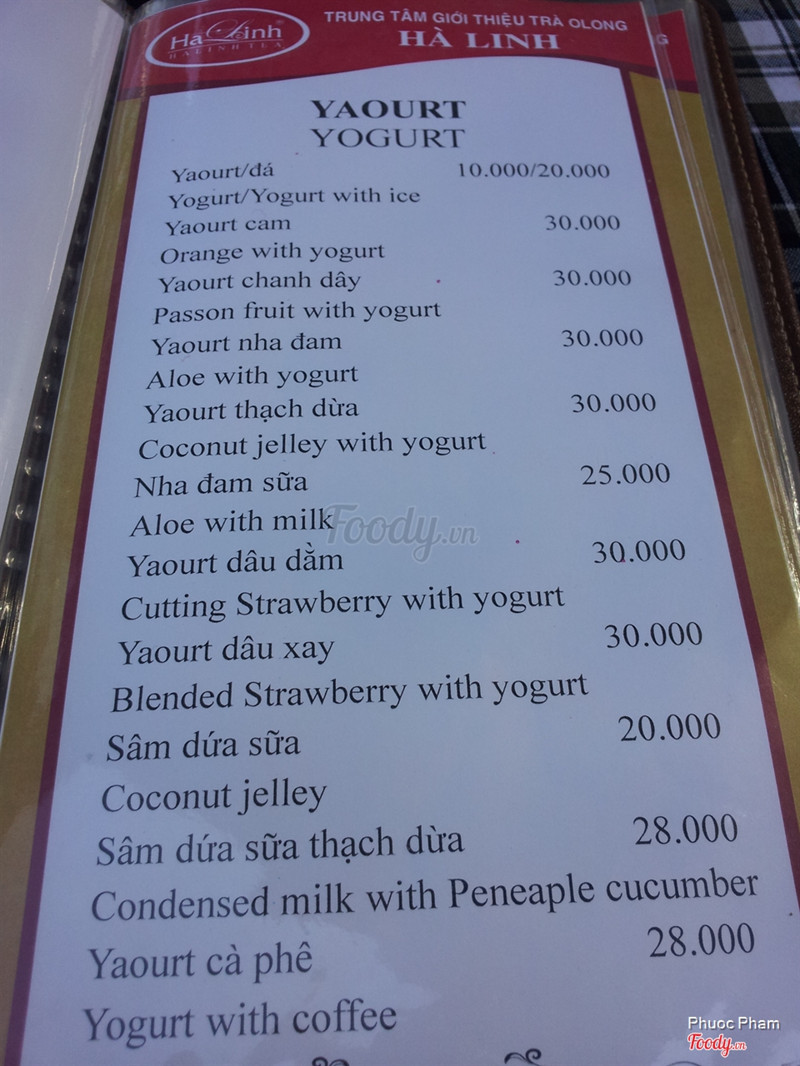 Ha Linh ®
HALINH TEA
TRUNG TÂM GIỚI THIỆU TRÀ OLONG
HÀ LINH
G
YAOURT
YOGURT
Yaourt/đá 10.000/20.000
Yogurt/Yogurt with ice
Yaourt cam 30.000
Orange with yogurt
Yaourt chanh dây 30.000
Passon fruit with yogurt
Yaourt nha đam 30.000
Aloe with yogurt
Yaourt thạch dừa 30.000
Coconut jelley with yogurt
Nha đam sữa 25.000
Aloe with milk
Foody.vn
Yaourt dâu dằm 30.000
Cutting Strawberry with yogurt
Yaourt dâu xay 30.000
Blended Strawberry with yogurt
Sâm dứa sữa 20.000
Coconut jelley
Sâm dứa sữa thạch dừa 28.000
Condensed milk with Peneaple cucumber
Yaourt cà phê 28.000
Yogurt with coffee
Phuoc Pham
Foody.vn